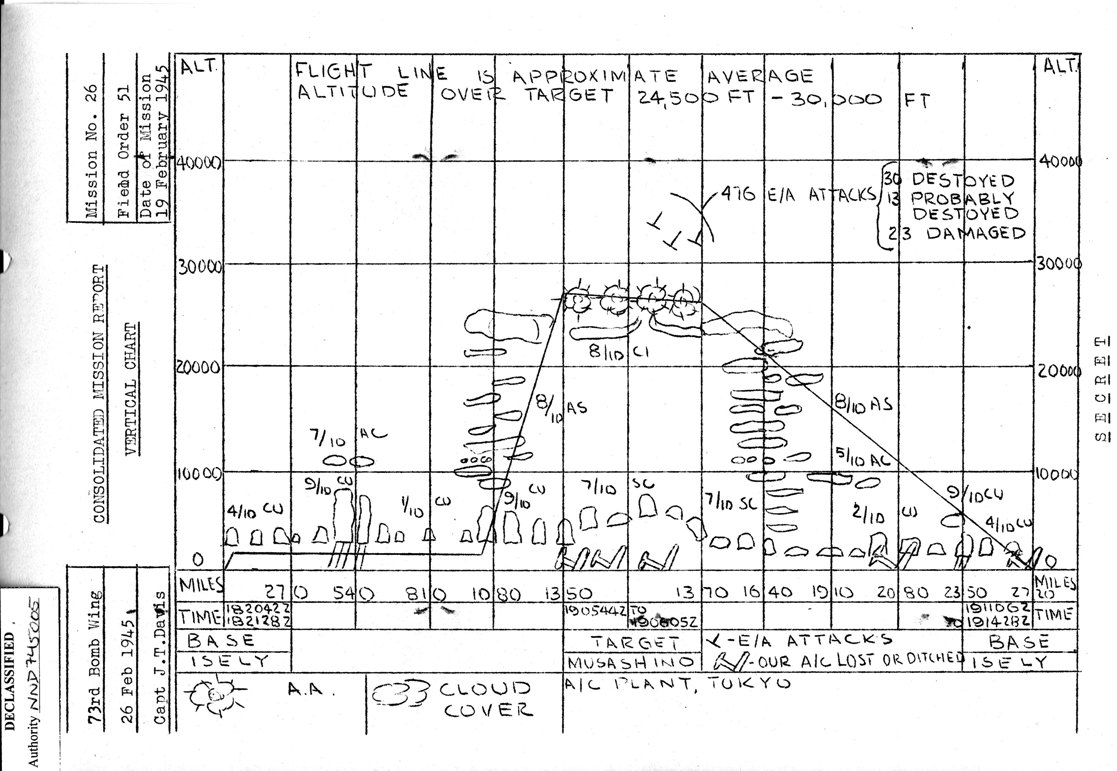 Mission No. 26
Field Order 51
Date of Mission
19 February 1945
CONSOLIDATED MISSION REPORT
VERTICAL CHART
73rd Bomb Wing
26 Feb 1945
Capt J.T.Davis
DECLASSIFIED
Authority NND 745005
SECRET
ALT.
FLIGHT LINE IS APPROXIMATE AVERAGE
ALTITUDE OVER TARGET 24,500 FT - 30,000 FT
ALT.
40000
40000
476 E/A ATTACKS
30 DESTOYED
13 PROBABLY
DESTOYED
23 DAMAGED
30000
30000
8/10 CI
20000
20000
8/10 AS
8/10 AS
7/10 AC
5/10 AC
10000
10000
9/10
4/10 CU
1/10 CU
9/10 CU
7/10 SC
7/10 SC
2/10 CU
9/10 CU
4/10 CU
0
0
MILES 270 540 810 1080 1350 1370 1640 1910 2080 2350 27 20 MILES
TIME 182042Z 190544Z TO 191106Z TIME
182128Z 190605Z TO 191428Z
BASE TARGET -E/A ATTACKS BASE
ISELY MUSASHINO -OUR A/C LOST OR DITCHED ISELY
A/C PLANT, TOKYO
A.A. CLOUD
COVER